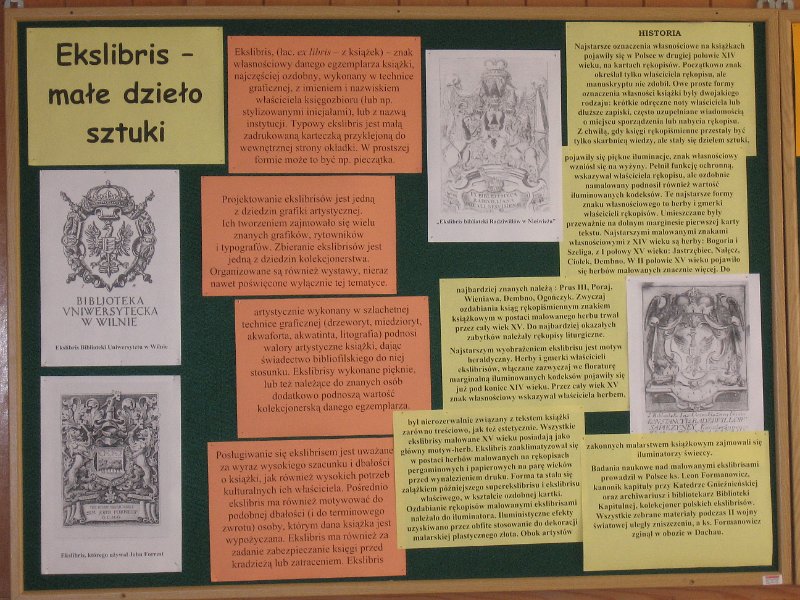 Ekslibris –
małe dzieło
sztuki
BIBLIOTEKA
VNIWERSYTECKA
W WILNIE
Ekslibris Biblioteki Uniwersytetu w Wilnie
Ekslibris, którego używał John Forrest
Ekslibris, (łac. ex libris – z książek) – znak
własnościowy danego egzemplarza książki,
najczęściej ozdobny, wykonany w technice
graficznej, z imieniem i nazwiskiem
właściciela księgozbioru (lub np.
stylizowanymi inicjałami), lub z nazwą
instytucji. Typowy ekslibris jest małą
zadrukowaną karteczką przyklejoną do
wewnętrznej strony okładki. W prostszej
formie może to być np. pieczątka.
Projektowanie ekslibrisów jest jedną
z dziedzin grafiki artystycznej.
Ich tworzeniem zajmowało się wielu
znanych grafików, rytowników
i typografów. Zbieranie ekslibrisów jest
jedną z dziedzin kolekcjonerstwa.
Organizowane są również wystawy, nieraz
nawet poświęcone wyłącznie tej tematyce.
artystycznie wykonany w szlachetnej
technice graficznej (drzeworyt, miedzioryt,
akwaforta, akwatinta, litografia) podnosi
walory artystyczne książki, dając
świadectwo bibliofilskiego do niej
stosunku. Ekslibrisy wykonane pięknie,
lub też należące do znanych osób
dodatkowo podnoszą wartość
kolekcjonerską danego egzemplarza.
Posługiwanie się ekslibrisem jest uważane
za wyraz wysokiego szacunku i dbałości
o książki, jak również wysokich potrzeb
kulturalnych ich właściciela. Pośrednio
ekslibris ma również motywować do
podobnej dbałości (i do terminowego
zwrotu) osoby, którym dana książka jest
wypożyczana. Ekslibris ma również za
zadanie zabezpieczanie księgi przed
kradzieżą lub zatraceniem. Ekslibris
„Ekslibris biblioteki Radziwiłłów w Nieświeżu"
HISTORIA
Najstarsze oznaczenia własnościowe na książkach
pojawiły się w Polsce w drugiej połowie XIV
wieku, na kartach rękopisów. Początkowo znak
określał tylko właściciela rękopisu, ale
manuskryptu nie zdobił. Owe proste formy
oznaczenia własności książki były dwojakiego
rodzaju: krótkie odręczne noty właściciela lub
dłuższe zapiski, często uzupełniane wiadomością
o miejscu sporządzenia lub nabycia rękopisu.
Z chwilą, gdy księgi rękopiśmienne przestały być
tylko skarbnicą wiedzy, ale stały się dziełem sztuki,
pojawiły się piękne iluminacje, znak własnościowy
wzniósł się na wyżyny. Pełnił funkcję ochronną,
wskazywał właściciela rękopisu, ale ozdobnie
namalowany podnosił również wartość
iluminowanych kodeksów. Te najstarsze formy
znaku własnościowego to herby i gmerki
właścicieli rękopisów. Umieszczane były
przeważnie na dolnym marginesie pierwszej karty
tekstu. Najstarszymi malowanymi znakami
własnościowymi z XIV wieku są herby: Bogoria i
Szeliga, z I połowy XV wieku: Jastrzębiec, Nałęcz,
Ciołek, Dembno. W II połowie XV wieku pojawiło
się herbów malowanych znacznie więcej. Do
najbardziej znanych należą : Prus III, Poraj,
Wieniawa, Dembno, Ogończyk. Zwyczaj
ozdabiania ksiąg rękopiśmiennym znakiem
książkowym w postaci malowanego herbu trwał
przez cały wiek XV. Do najbardziej okazałych
zabytków należały rękopisy liturgiczne.
Najstarszym wyobrażeniem ekslibrisu jest motyw
heraldyczny. Herby i gmerki właścicieli
ekslibrisów, włączane zazwyczaj we floraturę
marginalną iluminowanych kodeksów pojawiły się
już pod koniec XIV wieku. Przez cały wiek XV
znak własnościowy wskazywał właściciela herbem,
był nierozerwalnie związany z tekstem książki
zarówno treściowo, jak też estetycznie. Wszystkie
ekslibrisy malowane XV wieku posiadają jako
główny motyw-herb. Ekslibris zaaklimatyzował się
w postaci herbów malowanych na rękopisach
pergaminowych i papierowych na parę wieków
przed wynalezieniem druku. Forma ta stała się
zalążkiem późniejszego superekslibrisu i ekslibrisu
właściwego, w kształcie ozdobnej kartki.
Ozdabianie rękopisów malowanymi ekslibrisami
należało do iluminatora. Iluministyczne efekty
uzyskiwano przez obfite stosowanie do dekoracji
malarskiej plastycznego złota. Obok artystów
zakonnych malarstwem książkowym zajmowali się
iluminatorzy świeccy.
Badania naukowe nad malowanymi ekslibrisami
prowadził w Polsce ks. Leon Formanowicz,
kanonik kapituły przy Katedrze Gnieźnieńskiej
oraz archiwariusz i bibliotekarz Biblioteki
Kapitulnej, kolekcjoner polskich ekslibrisów.
Wszystkie zebrane materiały podczas II wojny
światowej uległy zniszczeniu, a ks. Formanowicz
zginął w obozie w Dachau.